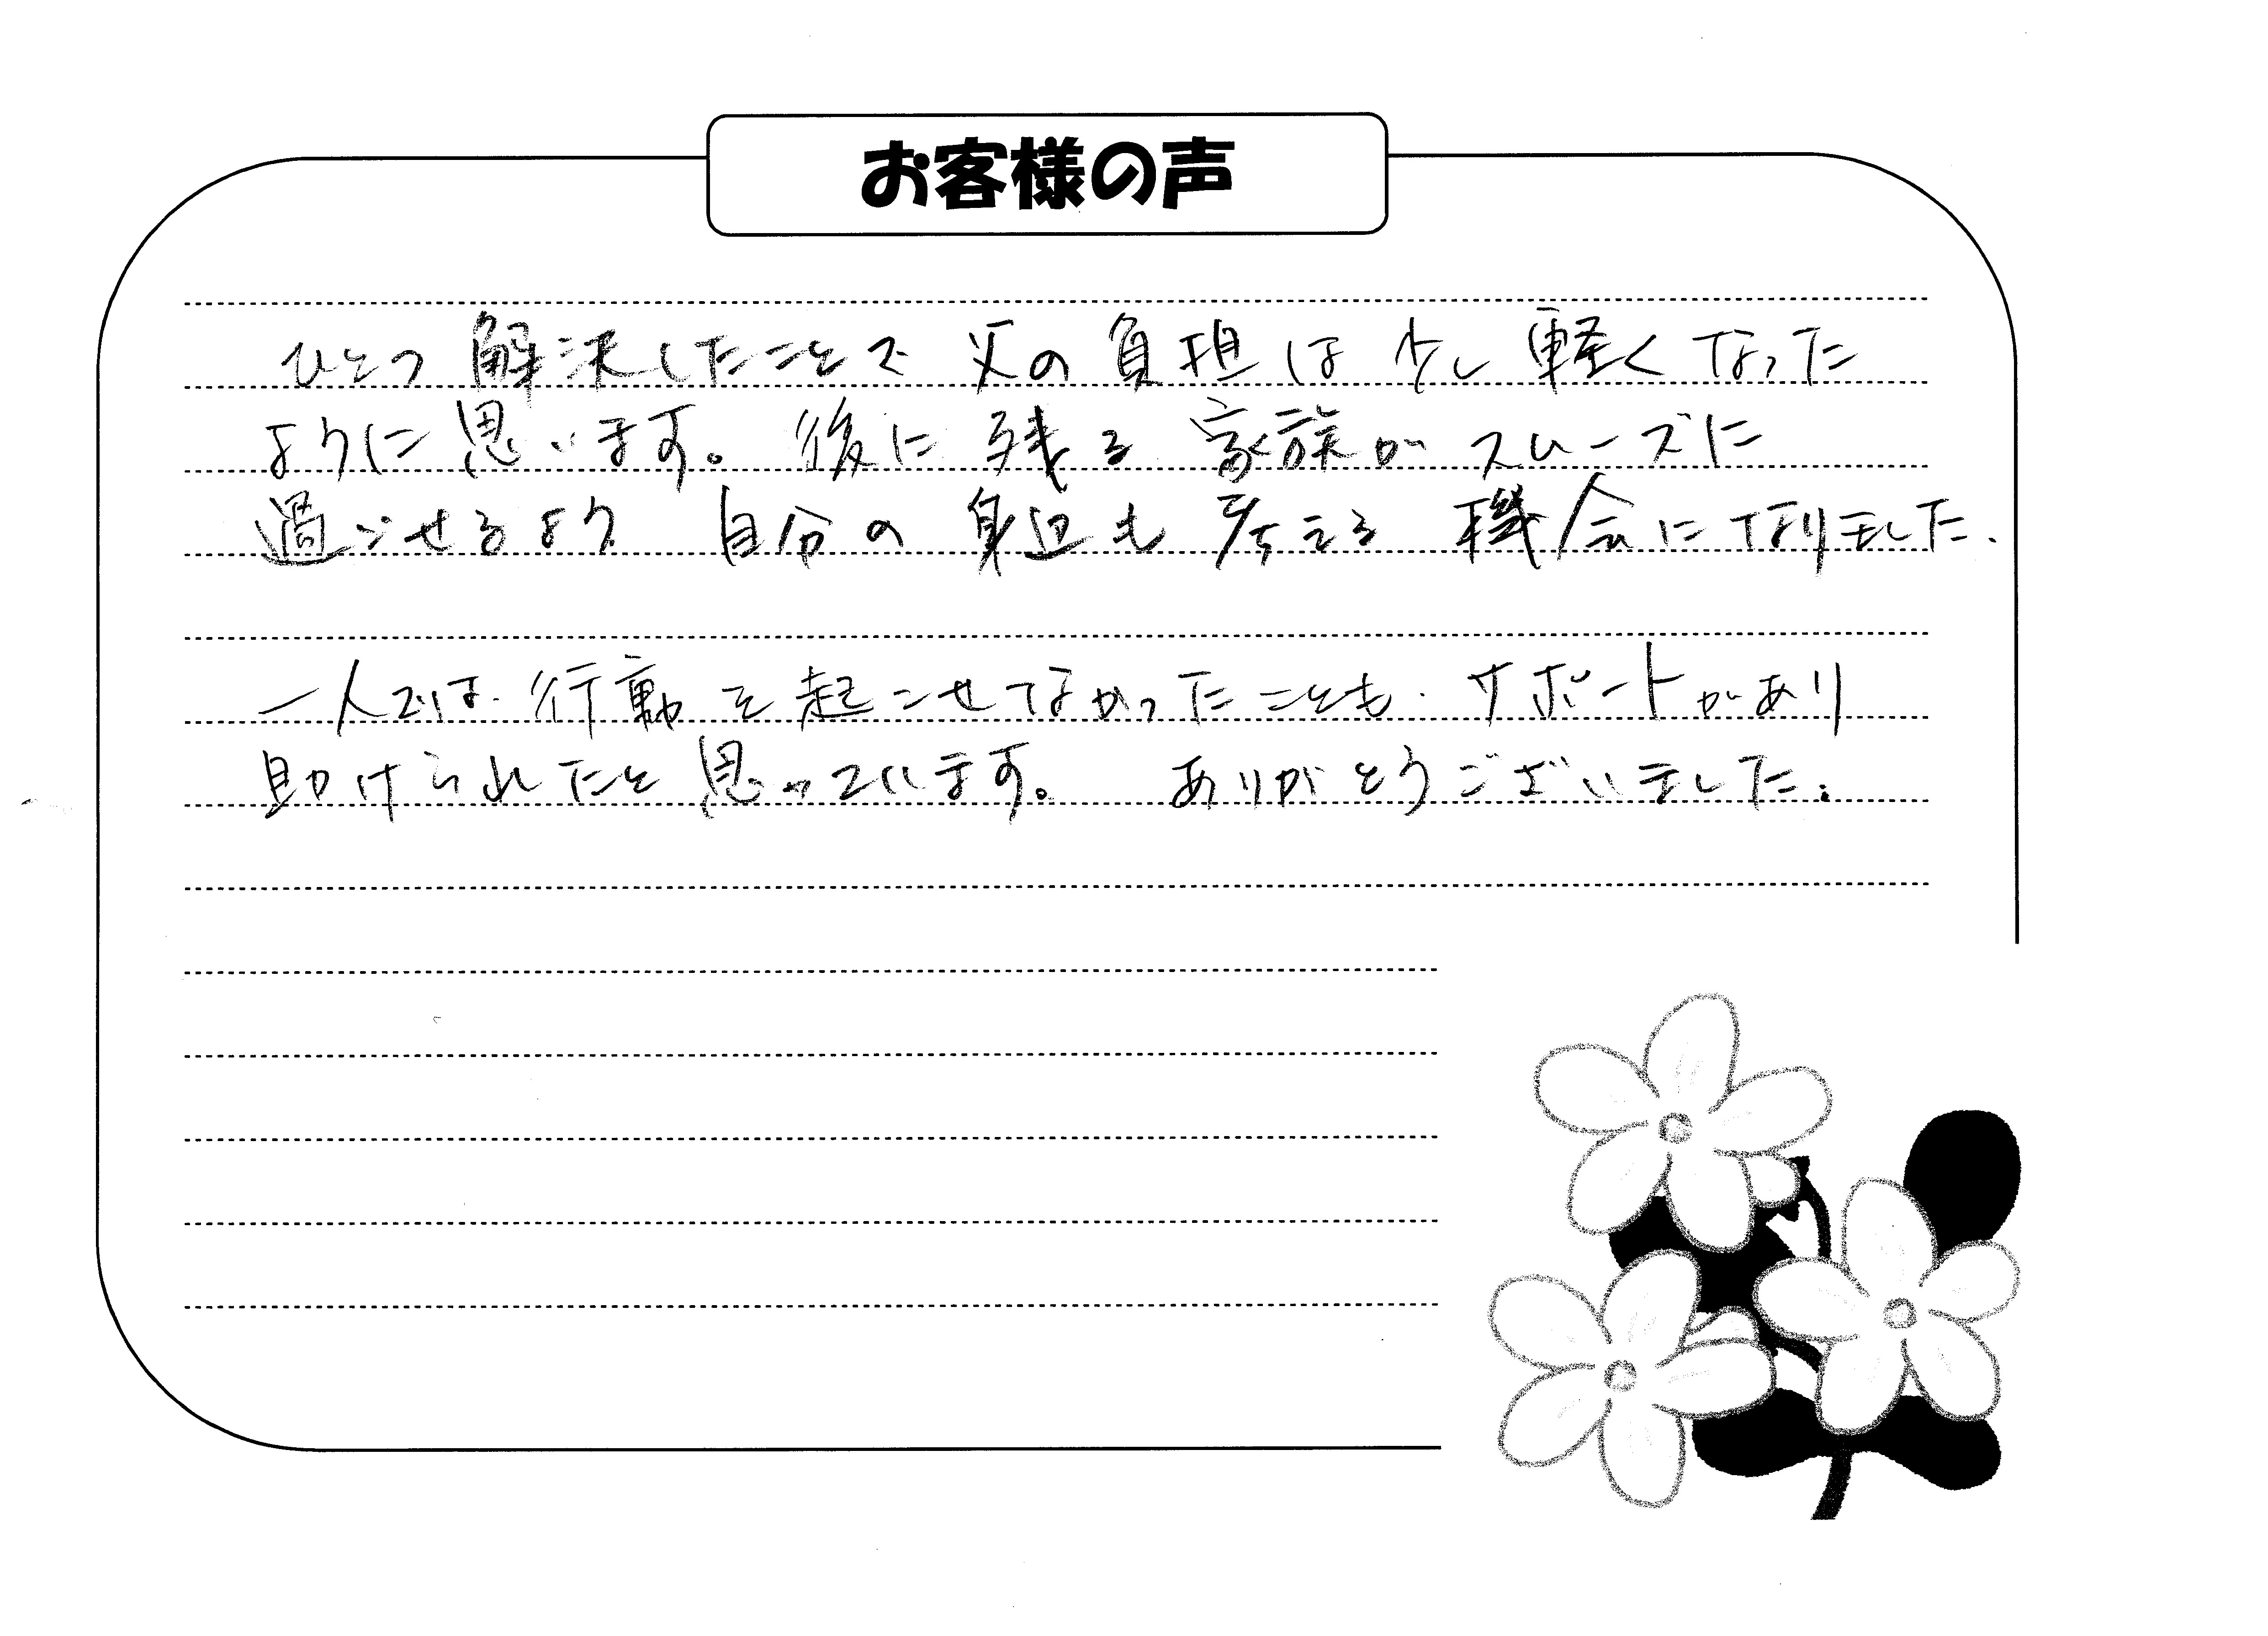 お客様の声
ひとつ解決したことで父の負担は少し軽くなった
ように思います。後に残る家族がスムーズに
過ごせるよう自分の身辺も考える機会になりました.
一人では行動を起こせてなかったことも.サポートがあり
助けられたと思っています。ありがとうございました.